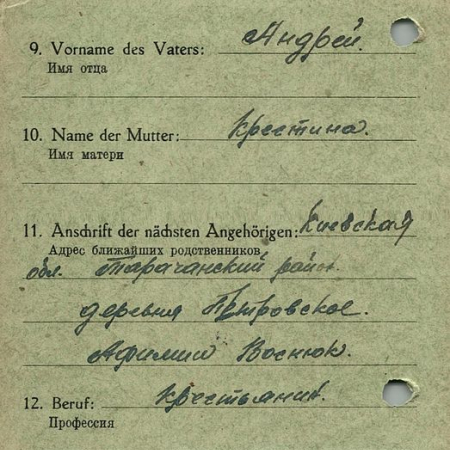 9. Vorname des Vaters: Андрей.
Имя отца
10. Name der Mutter: Крестина.
Имя матери
11. Anschrift der nächsten Angehörigen: Киевская
Адрес ближайших родственников
обл. Таращанский район.
деревня Петровское.
Афимий Воснюк.
12. Beruf: крестьянин.
Профессия